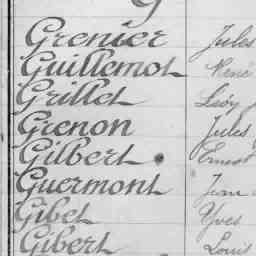 G
Grenier Jules
Guillemot René
Grillet Léoy
Grenon Jules
Gilbert Ernest
Guermont Jean
Gibet Yves
Gibert Louis